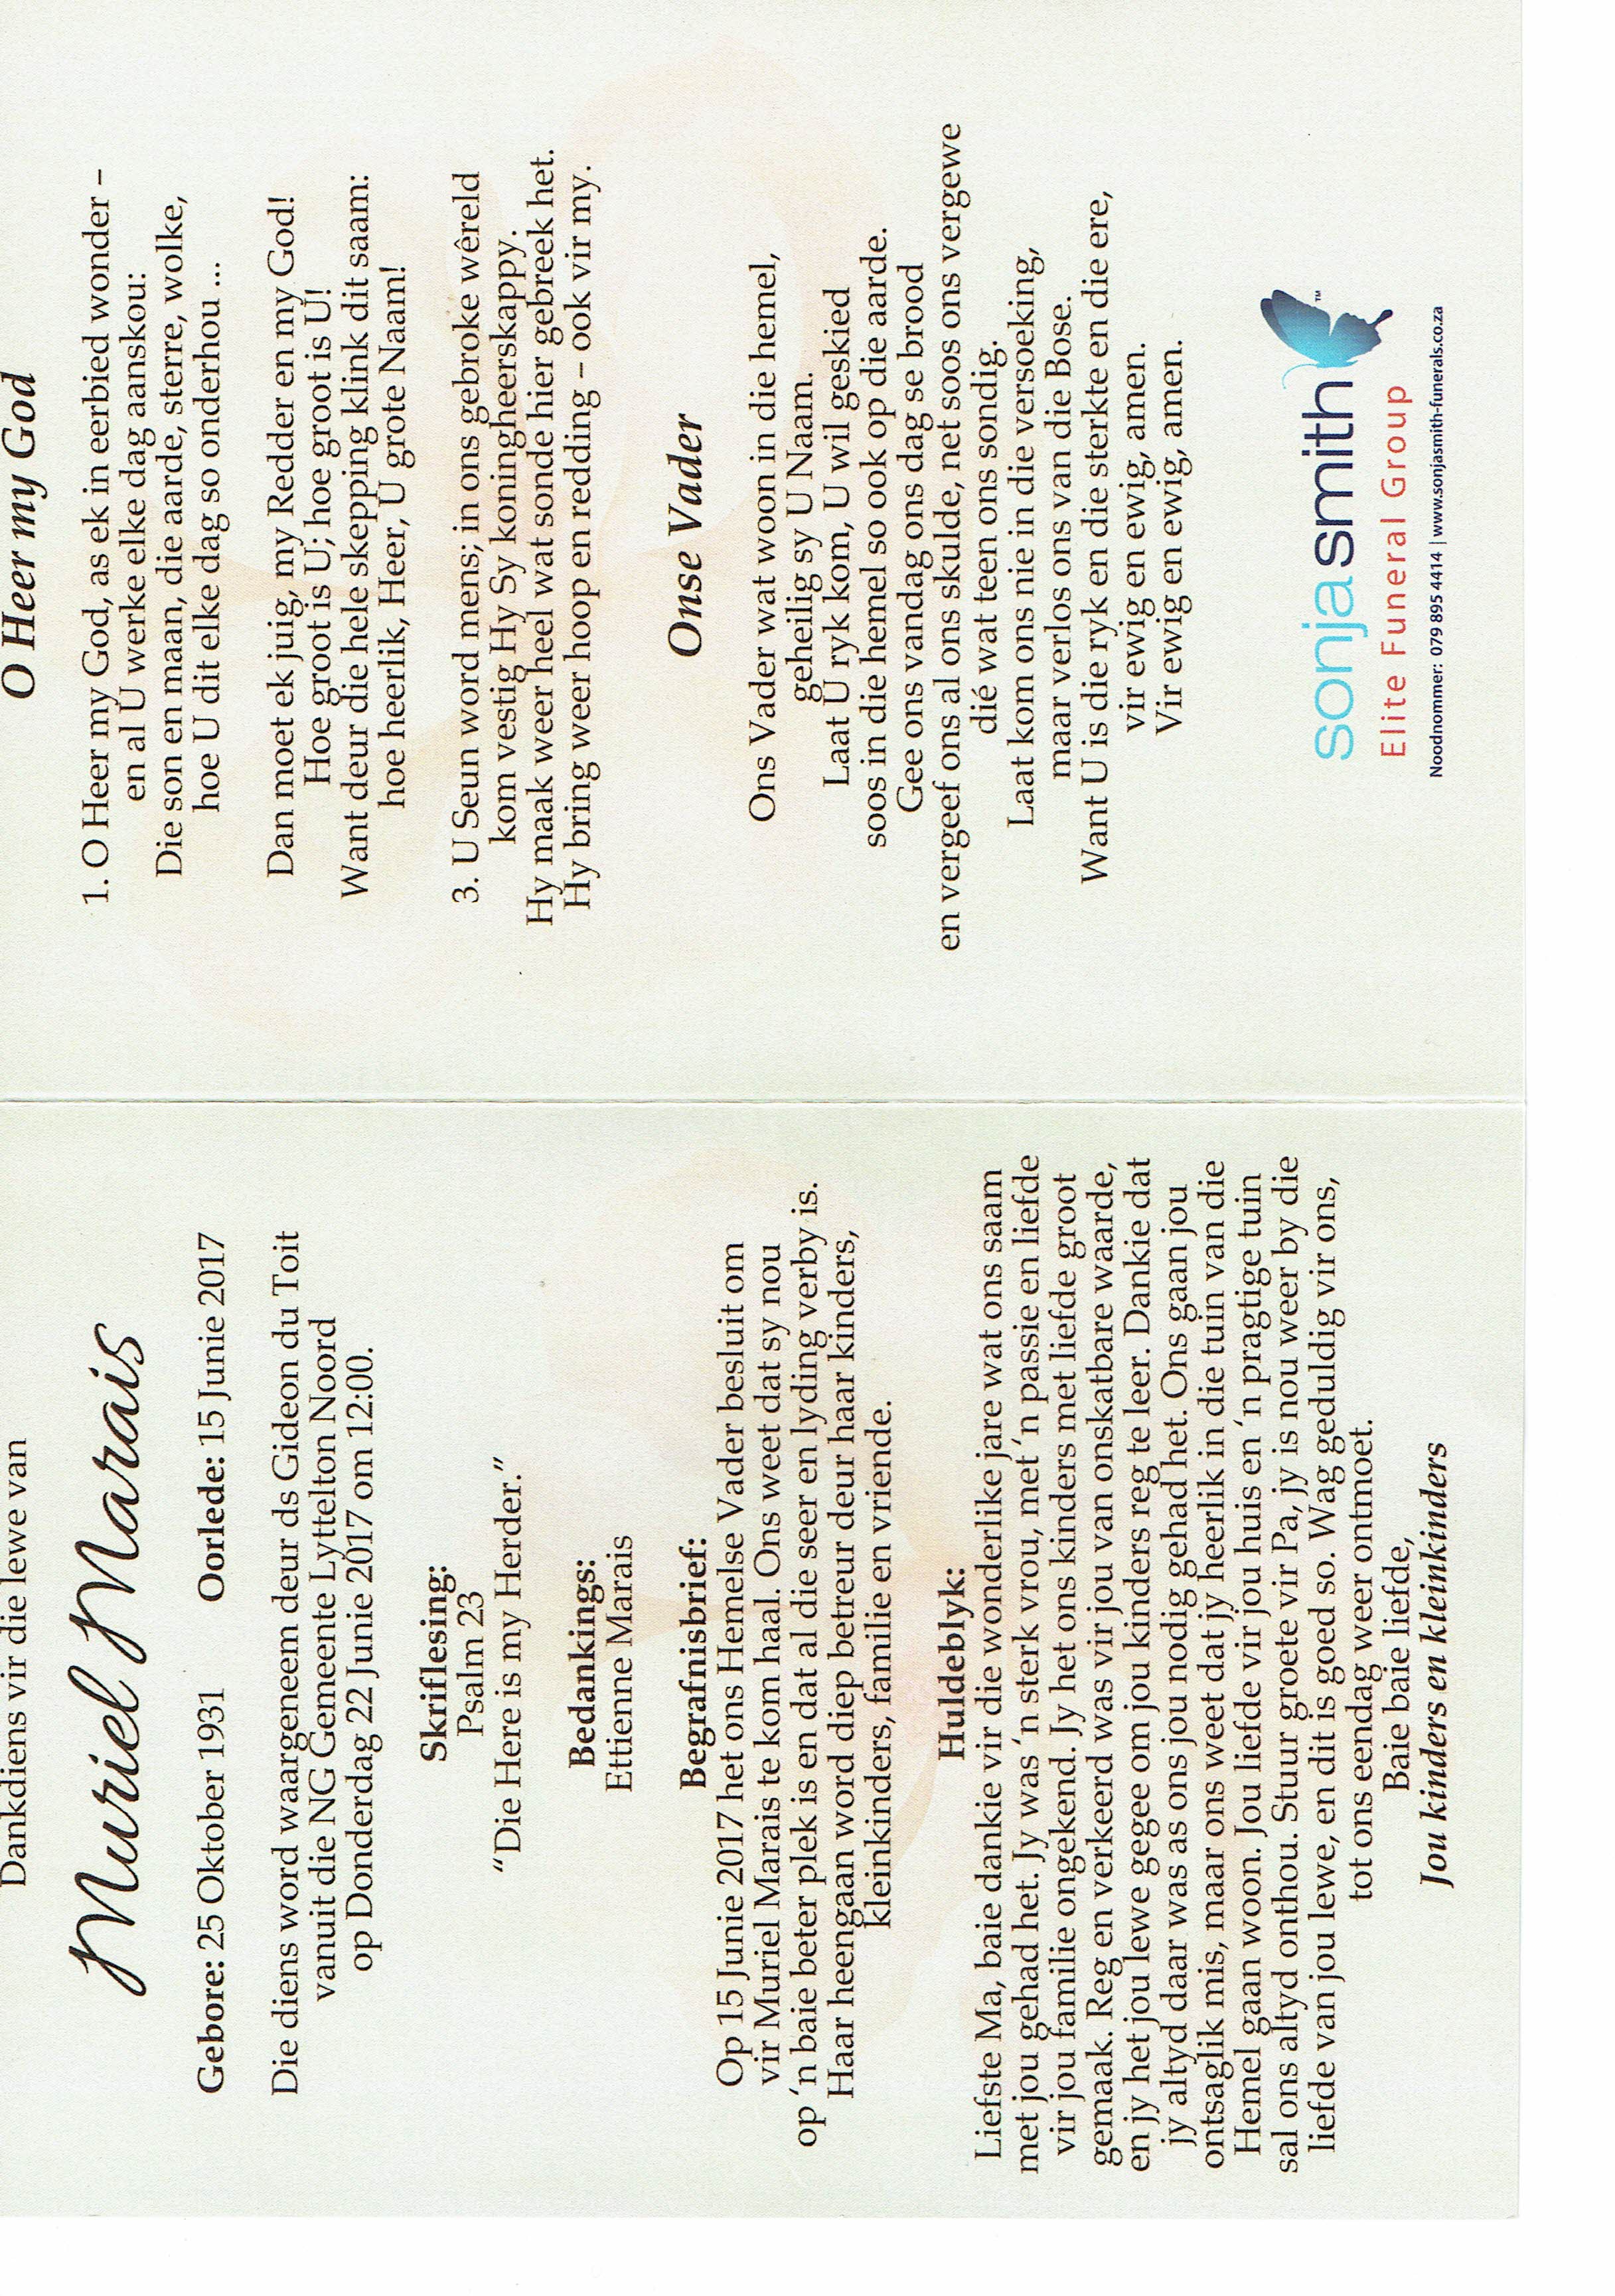 Dankdiens vir die lewe van
Muriel Marais
Gebore: 25 Oktober 1931 Oorlede: 15 Junie 2017
Die diens word waargeneem deur ds Gideon du Toit
vanuit die NG Gemeente Lyttelton Noord
op Donderdag 22 Junie 2017 om 12:00.
Skriflesing:
Psalm 23
“Die Here is my Herder.”
Bedankings:
Ettienne Marais
Begrafnisbrief:
Op 15 Junie 2017 het ons Hemelse Vader besluit om
vir Muriel Marais te kom haal. Ons weet dat sy nou
op ‘n baie beter plek is en dat al die seer en lyding verby is.
Haar heengaan word diep betreur deur haar kinders,
kleinkinders, familie en vriende.
Huldeblyk:
Liefste Ma, baie dankie vir die wonderlike jare wat ons saam
met jou gehad het. Jy was ‘n sterk vrou, met ‘n passie en liefde
vir jou familie ongekend. Jy het ons kinders met liefde groot
gemaak. Reg en verkeerd was vir jou van onskatbare waarde,
en jy het jou lewe gegee om jou kinders reg te leer. Dankie dat
jy altyd daar was as ons jou nodig gehad het. Ons gaan jou
ontsaglik mis, maar ons weet dat jy heerlik in die tuin van die
Hemel gaan woon. Jou liefde vir jou huis en ‘n pragtige tuin
sal ons altyd onthou. Stuur groete vir Pa, jy is nou weer by die
liefde van jou lewe, en dit is goed so. Wag geduldig vir ons,
tot ons eendag weer ontmoet.
Baie baie liefde,
Jou kinders en kleinkinders
O Heer my God
1. O Heer my God, as ek in eerbied wonder –
en al U werke elke dag aanskou:
Die son en maan, die aarde, sterre, wolke,
hoe U dit elke dag so onderhou ...
Dan moet ek juig, my Redder en my God!
Hoe groot is U; hoe groot is U!
Want deur die hele skepping klink dit saam:
hoe heerlik, Heer, U grote Naam!
3. U Seun word mens; in ons gebroke wêreld
kom vestig Hy Sy koningheerskappy.
Hy maak weer heel wat sonde hier gebreek het.
Hy bring weer hoop en redding – ook vir my.
Onse Vader
Ons Vader wat woon in die hemel,
geheilig sy U Naam.
Laat U ryk kom, U wil geskied
soos in die hemel so ook op die aarde.
Gee ons vandag ons dag se brood
en vergeef ons al ons skulde, net soos ons vergewe
dié wat teen ons sondig.
Laat kom ons nie in die versoeking,
maar verlos ons van die Bose.
Want U is die ryk en die sterkte en die ere,
vir ewig en ewig, amen.
Vir ewig en ewig, amen.
sonjasmith™
Elite Funeral Group
Noodnommer: 079 895 4414 | www.sonjasmith-funerals.co.za